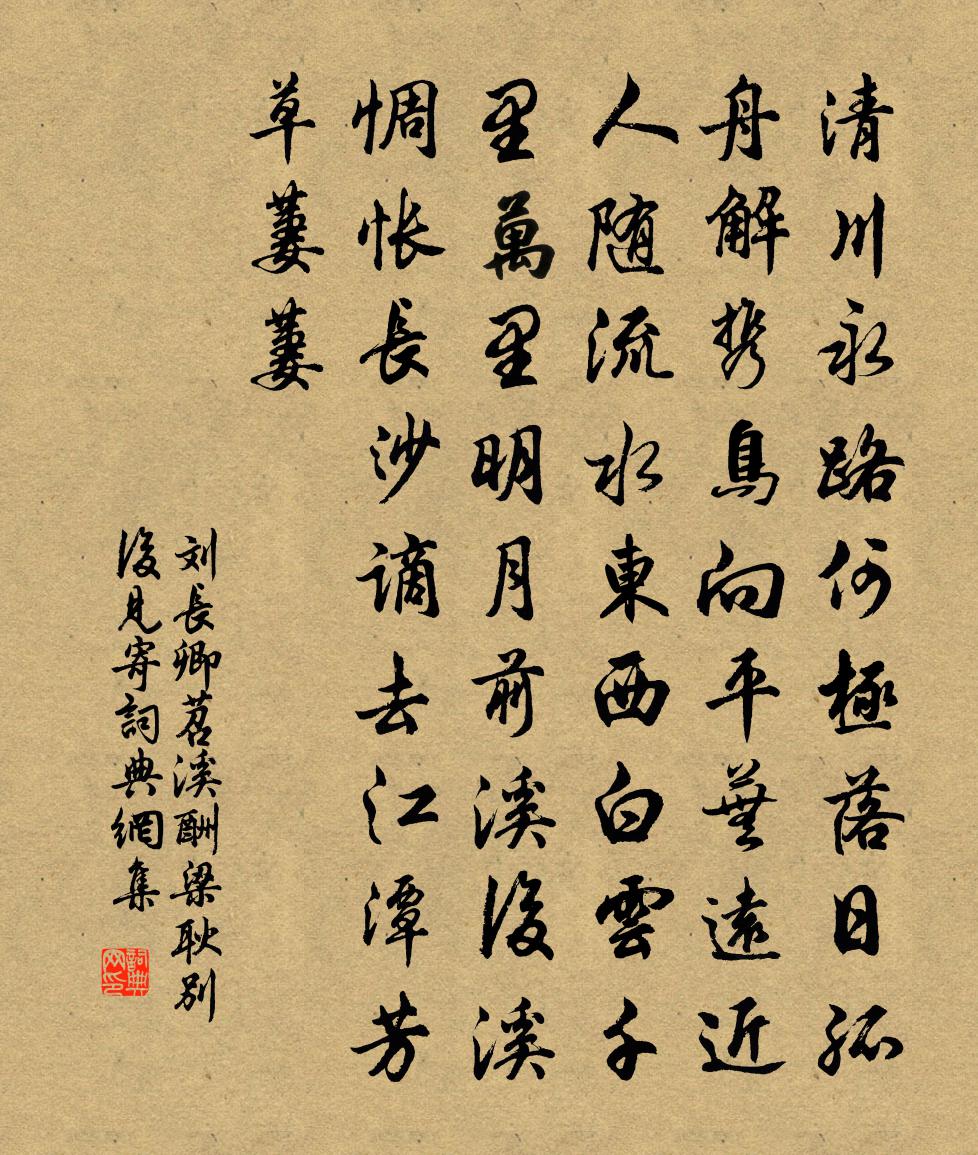 清川永路何極落日孤
舟解携鳥向平蕪遠近
人随流水東西白雲千
里萬里明月前溪後溪
惆悵長沙謫去江潭芳
草萋萋
刘長卿苕溪酬梁耿别
後見寄詞典網集
詞典
网印